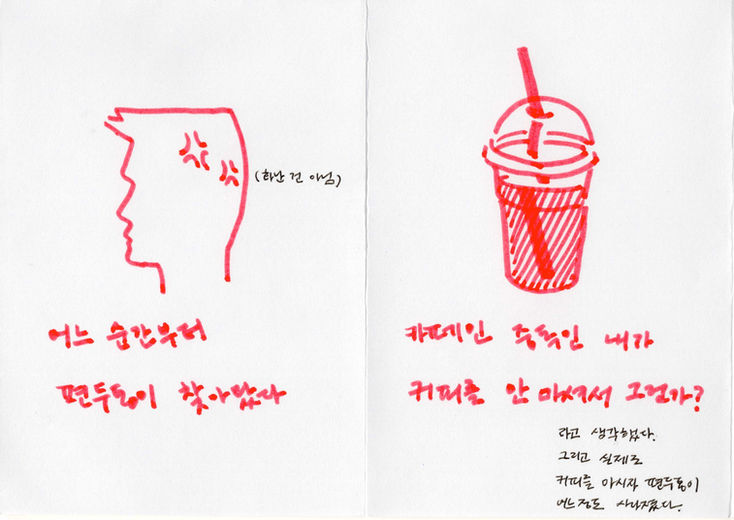 (화난 건 아님)
어느 순간부터
편두통이 찾아왔다
카페인 중독인 내가
커피를 안 마셔서 그런가?
라고 생각했다.
그리고 실제로
커피를 마시자 편두통이
어느정도 사라졌다.